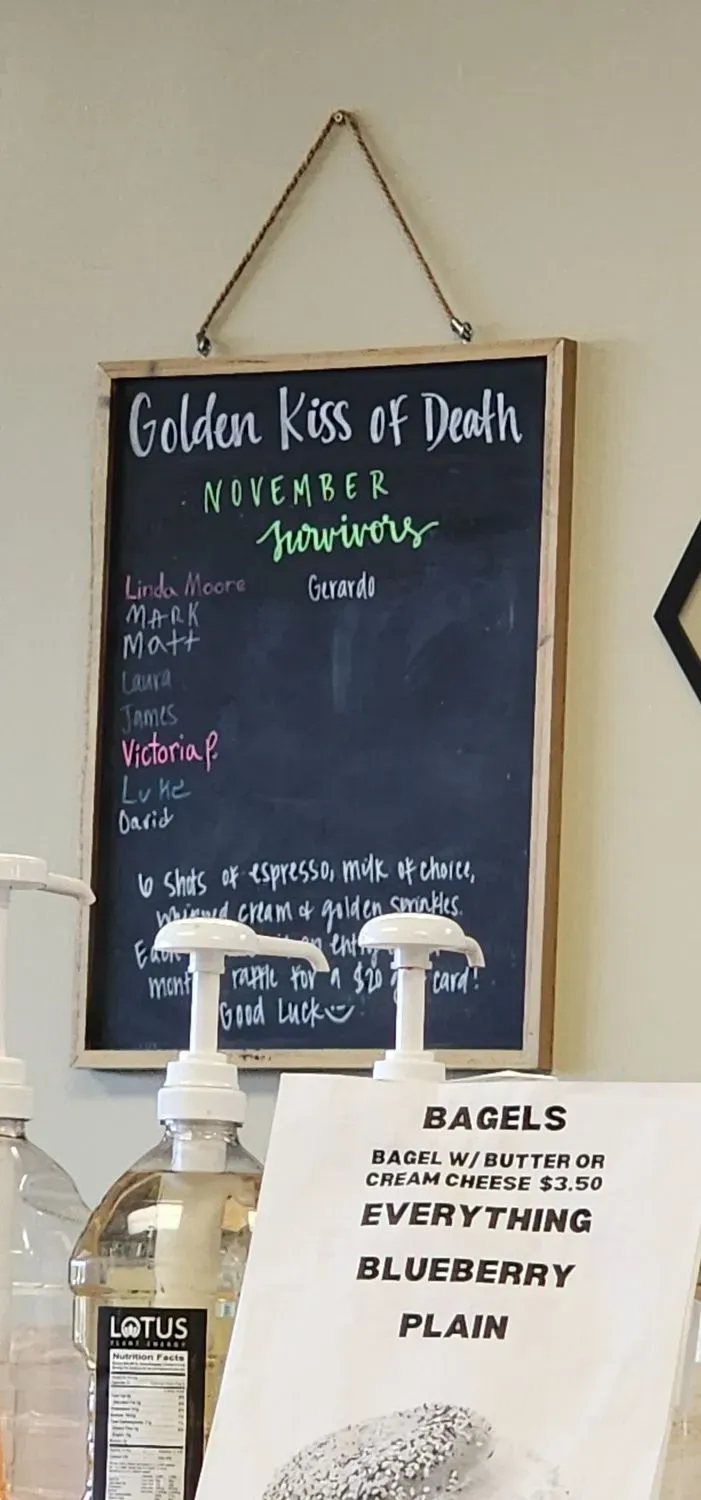 Golden Kiss of Death
NOVEMBER
survivors
Linda Moore
Gerardo
MARK
Matt
Laura
James
Victoria P.
Luke
David
6 shots of espresso, milk of choice,
whipped cream & golden sprinkles.
an entry
raffle for a $20 card!
Good Luck
BAGELS
BAGEL W/ BUTTER OR
CREAM CHEESE $3.50
EVERYTHING
BLUEBERRY
PLAIN
LOTUS
PLANT ENERGY
Nutrition Facts